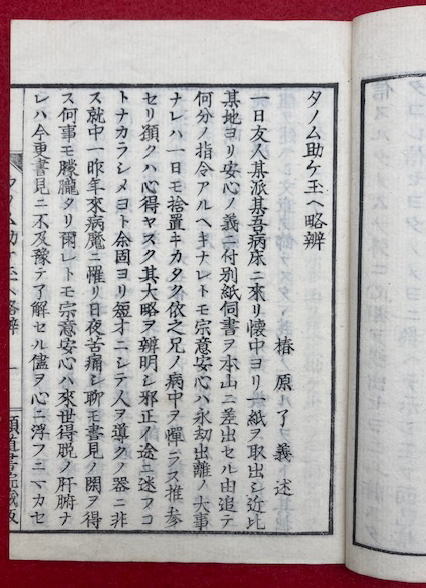 タノム助ケ玉ヘ略辨
椿原了義述
一日友人某派某吾病床ニ來リ懷中ヨリ一紙ヲ取出シ近比
某地ヨリ安心ノ義ニ付別紙伺書ヲ本山ニ差出セル由追テ
何分ノ指令アルヘキナレトモ宗意安心ハ永刧出離ノ大事
ナレハ一日モ捨置キカタク依之兄ノ病中ヲ憚ラス推參
セリ願クハ心得ヤスク其大略ヲ辨明シ邪正ノ途ニ迷フコ
トナカラシメヨト余固ヨリ短才ニシテ人ヲ導クノ器ニ非
ス就中一昨年來病魔ニ罹リ日夜苦痛シ聊モ書見ノ閑ヲ得
ス何事モ朦朧タリ爾レトモ宗意安心ハ來世得脱ノ肝腑ナ
レハ今更書見ニ不及豫テ了解セル儘ヲ心ニ浮フニマカセ
タノム助ケ玉ヘ略辨 一 顯道書院藏版